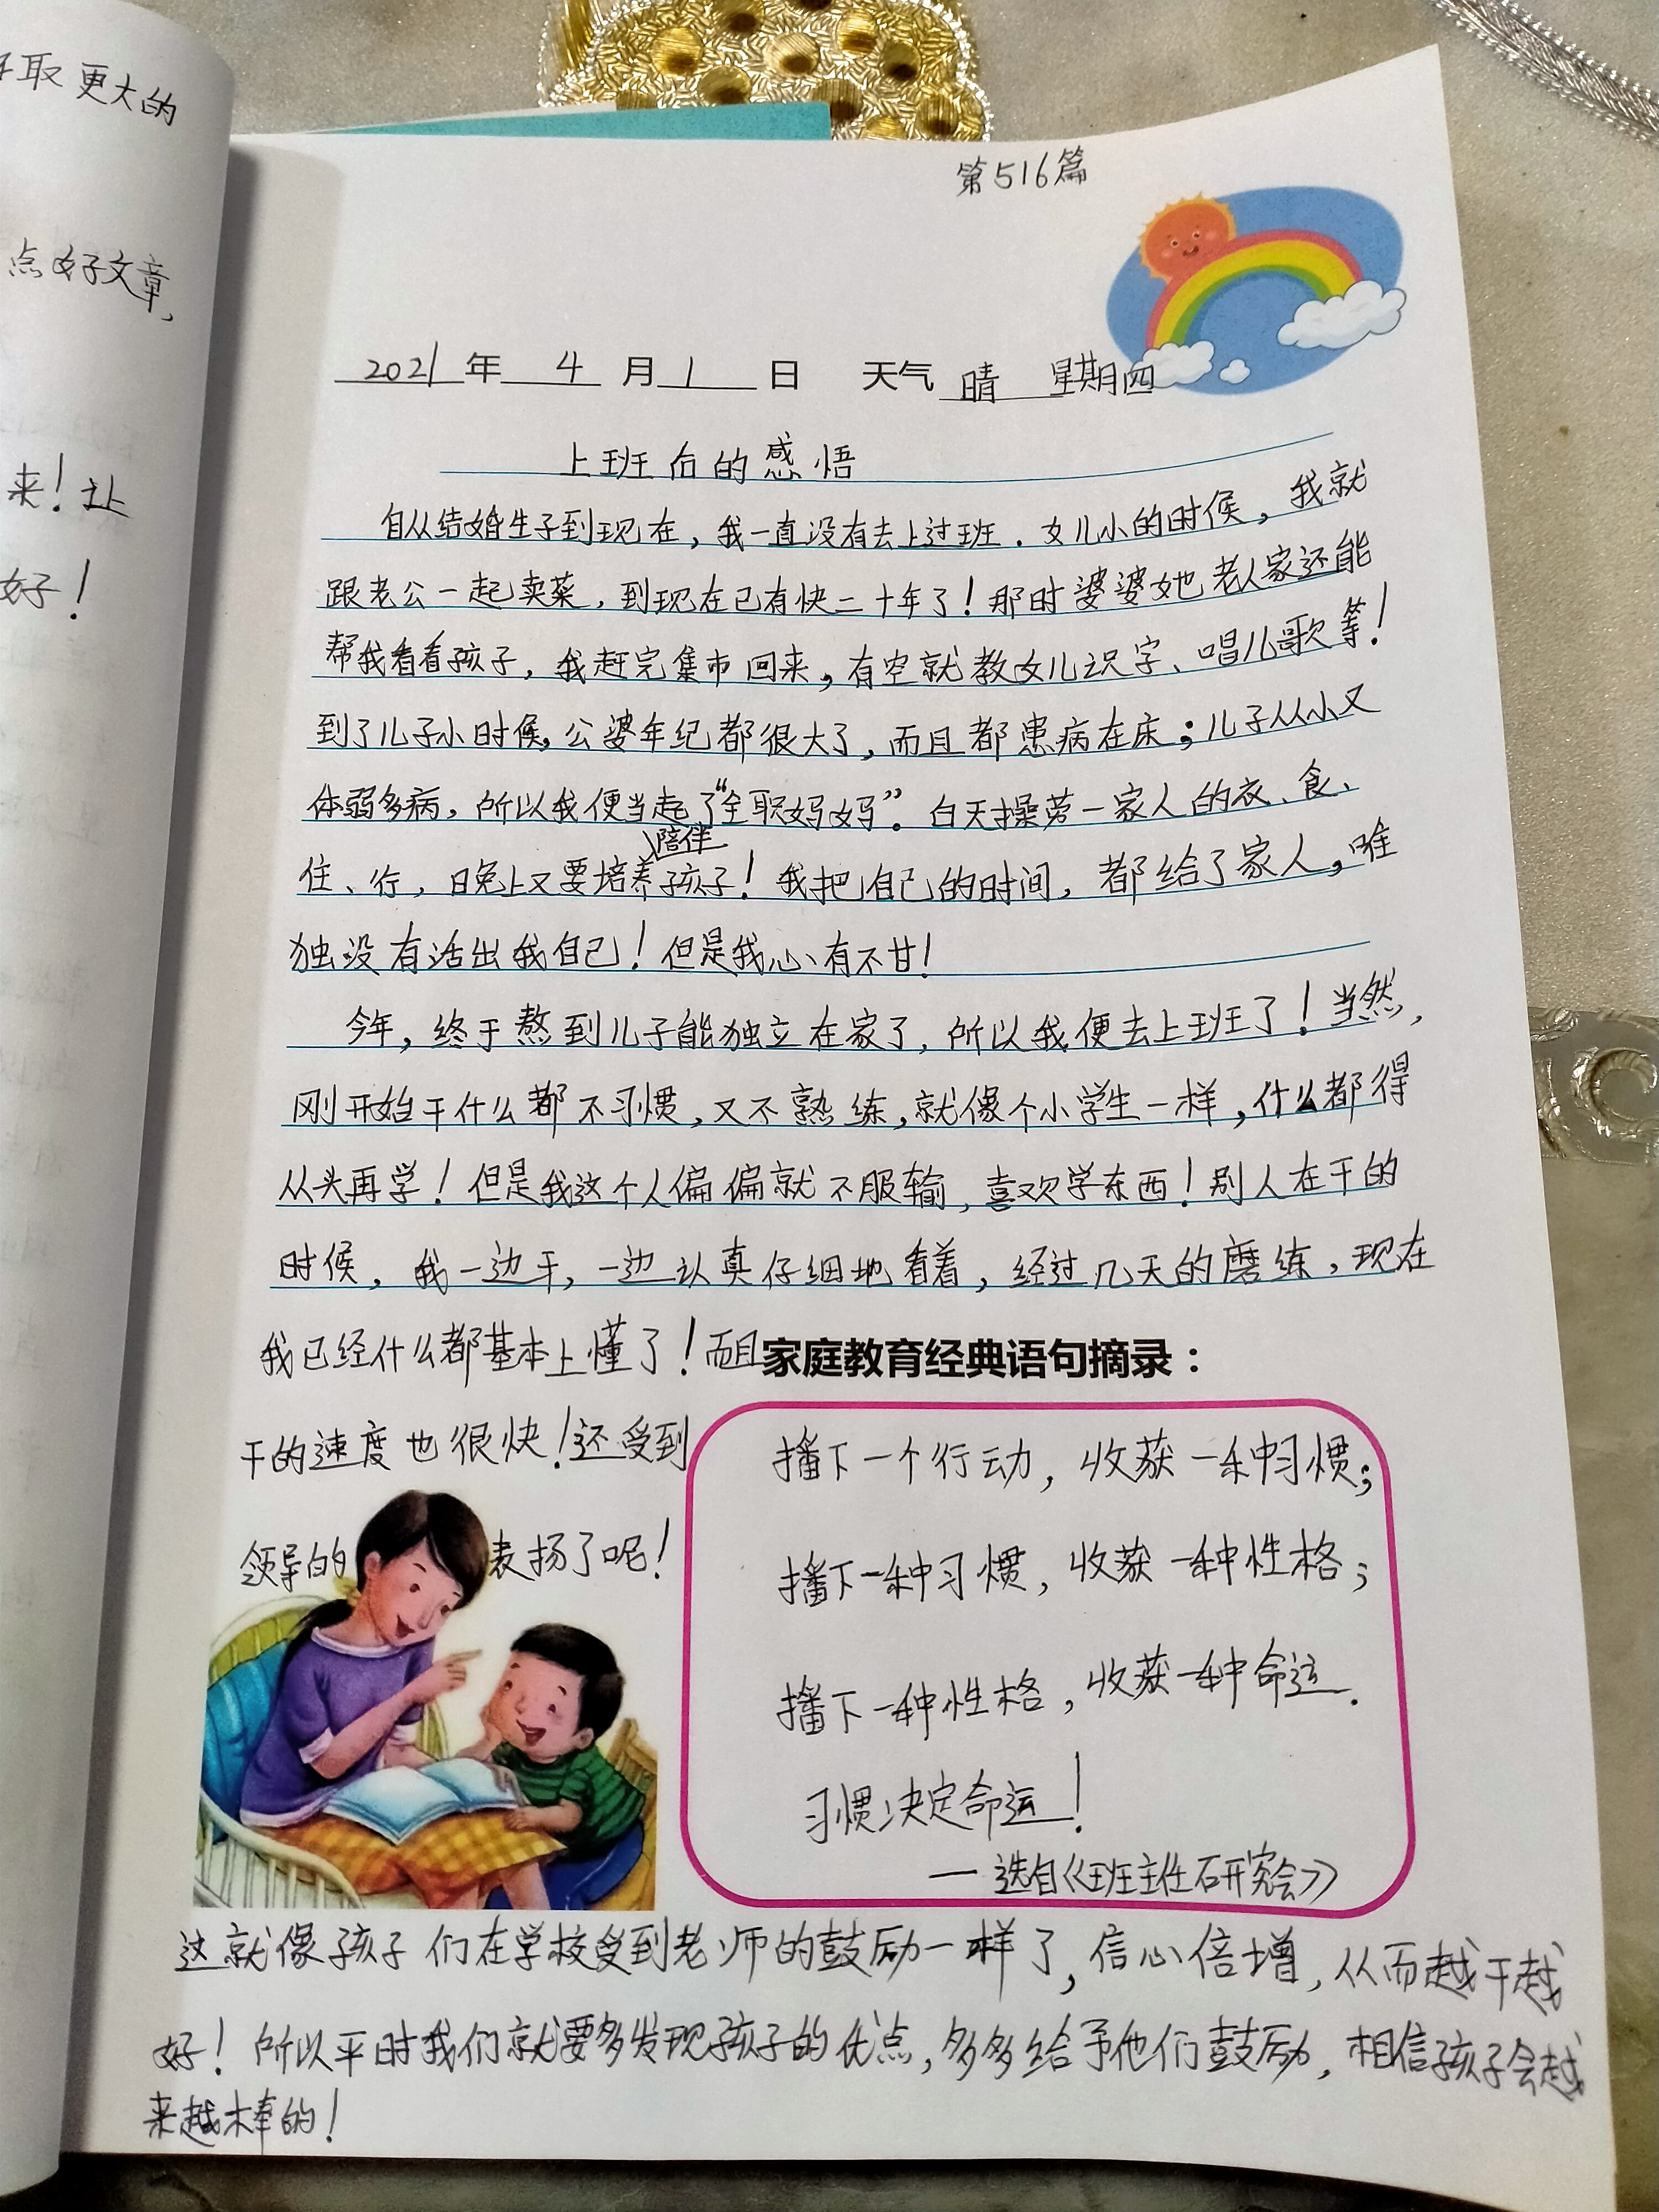 取更大的
点好文章,
来！让
好！
第516篇
2021年 4 月 1 日 天气 晴 星期四
上班后的感悟
自从结婚生子到现在，我一直没有去上过班．女儿小的时候，我就
跟老公一起卖菜，到现在已有快二十年了！那时婆婆她老人家还能
帮我看看孩子，我赶完集市回来，有空就教女儿识字、唱儿歌等！
到了儿子小时候，公婆年纪都很大了，而且都患病在床；儿子从小又
体弱多病，所以我便当起了“全职妈妈”．白天操劳一家人的衣、食、
陪伴
住、行，晚上又要培养孩子！我把自己的时间，都给了家人，唯
独没有活出我自己！但是我心有不甘！
今年，终于熬到儿子能独立在家了，所以我便去上班了！当然，
刚开始干什么都不习惯，又不熟练，就像个小学生一样，什么都得
从头再学！但是我这个人偏偏就不服输，喜欢学东西！别人在干的
时候，我一边干，一边认真仔细地看着，经过几天的磨练，现在
我已经什么都基本上懂了！而且
干的速度也很快！还受到
领导的表扬了呢！
家庭教育经典语句摘录：
播下一个行动，收获一种习惯；
播下一种习惯，收获一种性格；
播下一种性格，收获一种命运．
习惯决定命运！
—选自《班主任研究会》
这就像孩子们在学校受到老师的鼓励一样了，信心倍增，从而越干越
好！所以平时我们就要多发现孩子的优点，多多给予他们鼓励，相信孩子会越
来越棒的！